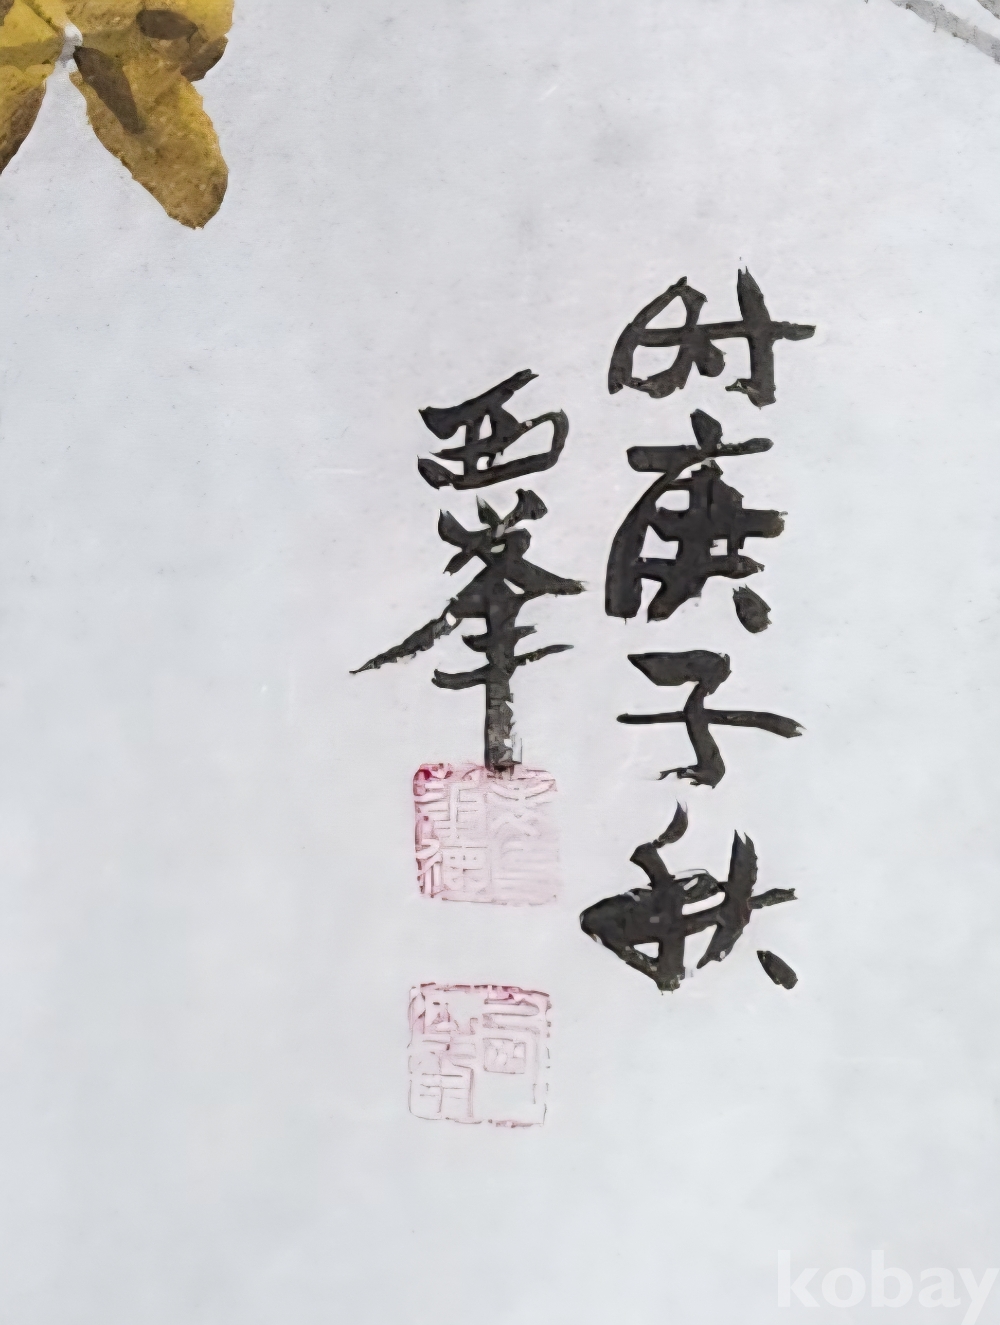 时庚子秋
西峯
kobay